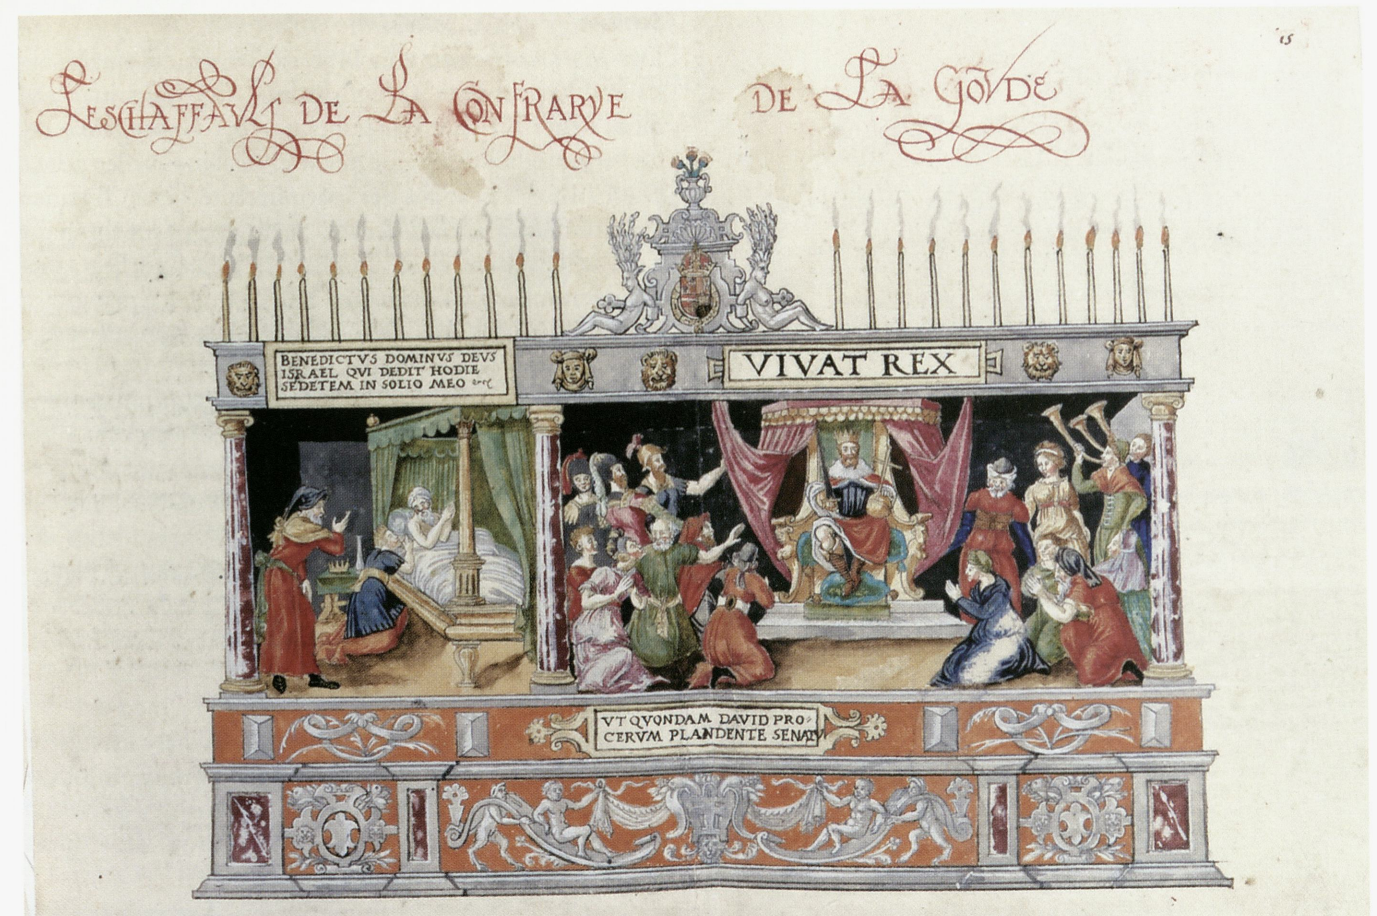 15
LESCHAFFAULS DE LA CONFRARYE DE LA GOVDE
BENEDICTVS DOMINVS DEVS
ISRAEL QVI DEDIT HODIE
SEDETEM IN SOLIO MEO
VIVAT REX
VT QVONDAM DAVID PRO-
CERVM PLANDENTE SENATV